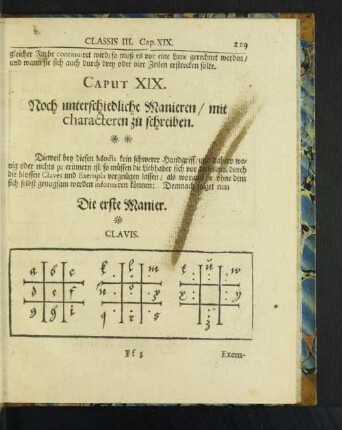 CLASSIS III. Cap. XIX. 229
gleicher Farbe continuiret wird; so muß es vor eine Linie gerechnet werden/
und wann sie sich auch durch drey oder vier Zeilen erstrecken solte.
CAPUT XIX.
Noch unterschiedliche Manieren / mit
characteren zu schreiben.
* *
Dieweil bey diesen Modis kein schwerer Handgriff / und dahero we-
nig oder nichts zu erinnern ist: so müssen die Liebhaber sich vor durch
die blossen Claves und Exempla vergnügen lassen / als woraus sie ohne dem
sich selbst genugsam werden informiren können: Demnach folget nun
Die erste Manier.
*
CLAVIS.
a b c k. l. m t: u: :w
d e f n. o. p x: y:
g h i q. r. s z
Ff 3 Exem-